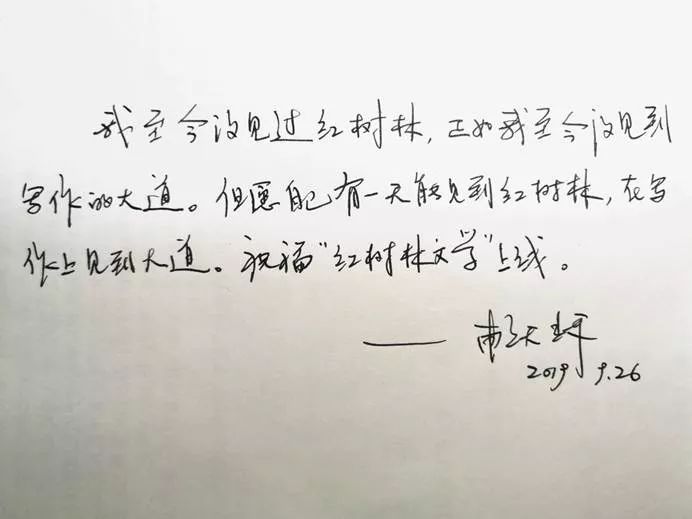 我至今没见过红树林，正如我至今没见到
写作的大道。但愿自己有一天能见到红树林，在写
作上见到大道。祝福“红树林文学”上线。
——
2019.9.26